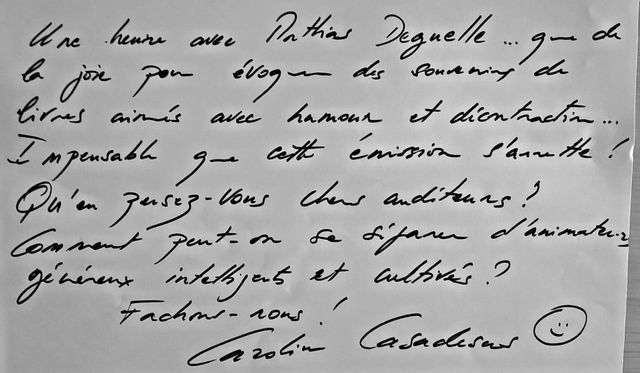 Une heure avec Mathias Deguelle... que de
la joie pour évoquer des souvenirs de
livres aimés avec humour et décontraction...
Impensable que cette émission s'arrette !
Qu'en pensez-vous chers auditeurs ?
Comment peut-on se séparer d'animateurs
généreux intelligents et cultivés ?
Fachons-nous !
Caroline Casadesus